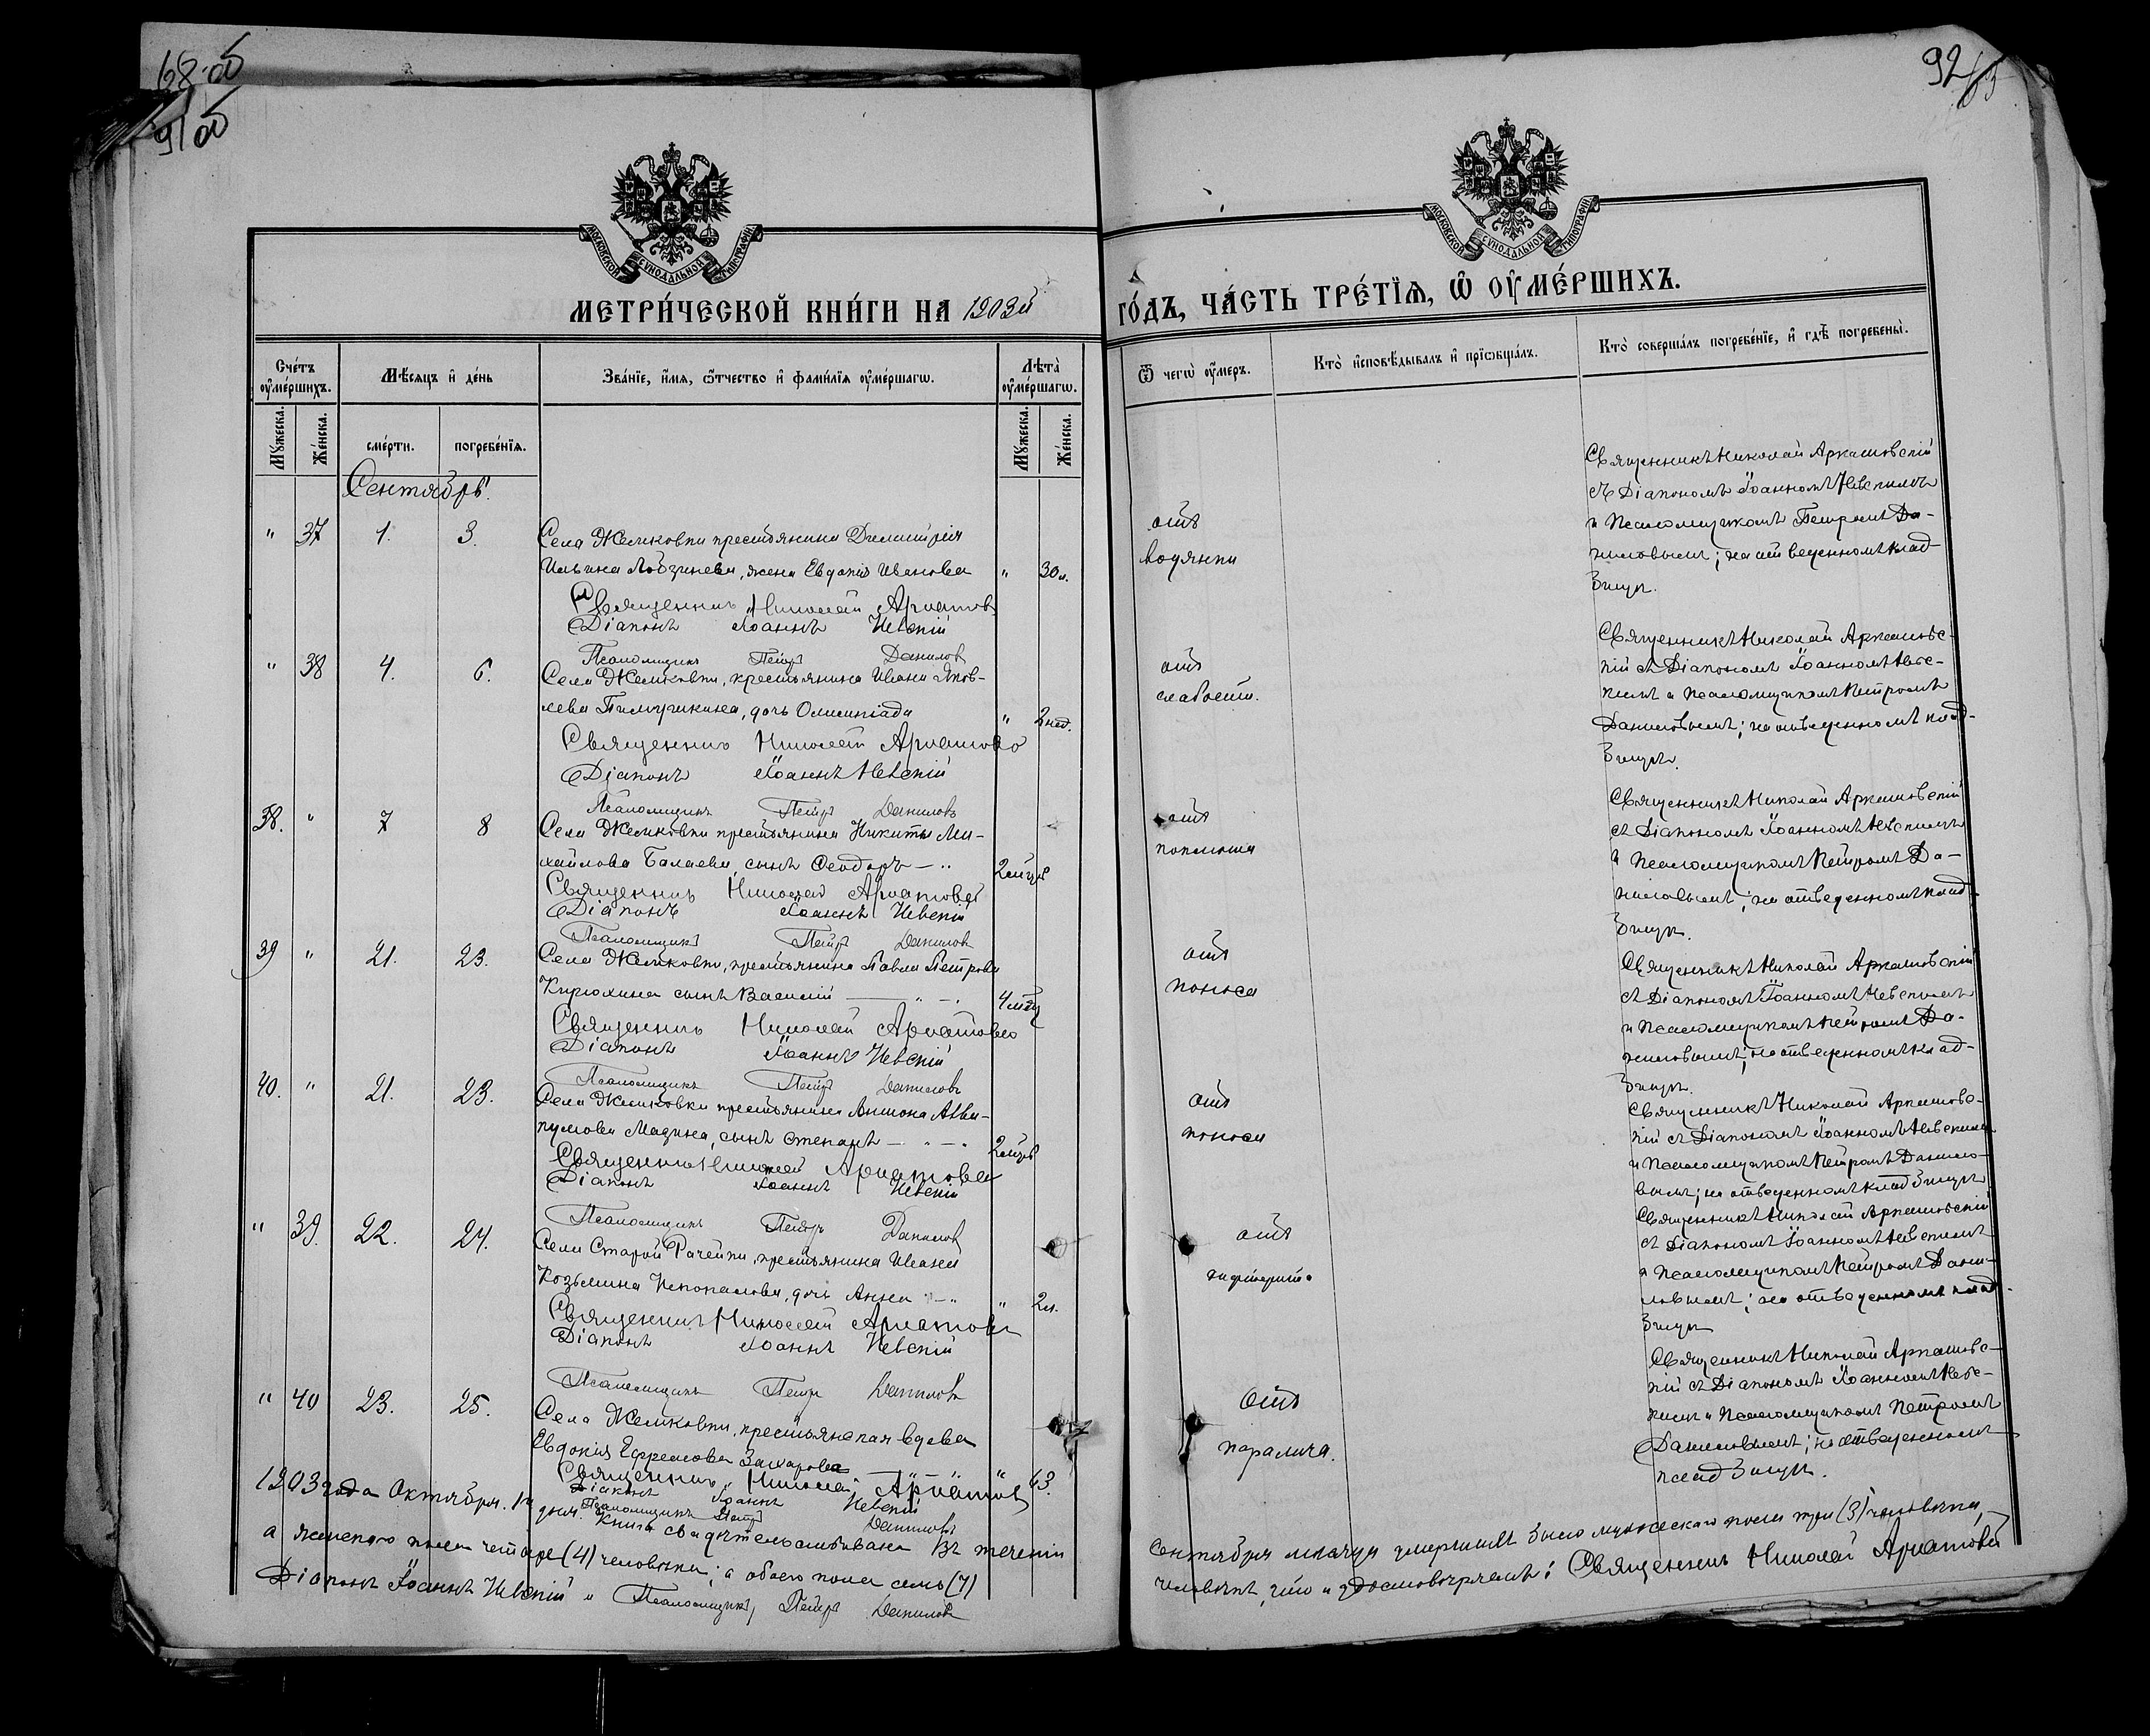 68 об
91 об
92
МОСКОВСКОЙ СѴНОДАЛЬНОЙ ТИПОГРАФІИ
МОСКОВСКОЙ СѴНОДАЛЬНОЙ ТИПОГРАФІИ
МЕТРИ́ЧЕСКОЙ КНИ́ГИ НА 1903й
ГО́ДЪ, ЧА́СТЬ ТРЕ́ТЇѦ, Ѿ ОУ҆МЕ́РШИХЪ.
Сче́тъ оу҆ме́ршихъ.
Мѣ́сѧцъ и҆ де́нь
Зва́нїе, и҆́мѧ, ѻ҆́тчество и҆ фами́лїѧ оу҆ме́ршагѡ.
Лѣ́та оу҆ме́ршагѡ.
Ѿ чегѡ̀ оу҆́меръ.
Кто̀ и҆сповѣ́дывалъ и҆ прїѡбща́лъ.
Кто̀ соверша́лъ погребе́нїе, и҆ гдѣ̀ погребены̀.
Мꙋ́жеска.
Же́нска.
сме́рти.
погребе́нїѧ.
Мꙋ́жеска.
Же́нска.
Сентябрь.
" 37 1. 3. Села Жемковки крестьянина Димитрія
Ильина жена Евдокія Иванова " 30 л.
Священникъ Николай
Діаконъ Іоаннъ Невскій
Псаломщикъ Петръ Данилов
отъ
водянки
Священникъ Николай
съ Діакономъ Іоанномъ Невскимъ
и Псаломщикомъ Петромъ Да-
ниловымъ; на отведенномъ клад-
бищѣ.
" 38 4. 6. Села Жемковки, крестьянина Ивана Яков-
лева дочь Олимпіада " 2 нед.
Священникъ Николай
Діаконъ Іоаннъ Невскій
Псаломщикъ Петръ Данилов
отъ
слабости.
Священникъ Николай
кій съ Діакономъ Іоанномъ Невс-
кимъ и Псаломщикомъ Петромъ
Даниловымъ; на отведенномъ клад-
бищѣ.
38. " 7 8 Села Жемковки крестьянина Никиты Ми-
хайлова Балаева, сынъ Ѳеодоръ — " 2 мѣс
Священникъ Николай
Діаконъ Іоаннъ Невскій
Псаломщикъ Петръ Данилов
отъ
коклюша
Священникъ Николай
съ Діакономъ Іоанномъ Невскимъ
и Псаломщикомъ Петромъ Да-
ниловымъ; на отведенномъ клад-
бищѣ.
39 " 21. 23. Села Жемковки, крестьянина Павла Петрова
Кирюхина сынъ Василій — " — 4 мѣс
Священникъ Николай
Діаконъ Іоаннъ Невскій
Псаломщикъ Петръ Данилов
отъ
поноса
Священникъ Николай
съ Діакономъ Іоанномъ Невскимъ
и Псаломщикомъ Петромъ Да-
ниловымъ; на отведенномъ клад-
бищѣ.
40. " 21. 23. Села Жемковки крестьянина Антона Авва-
кумова сынъ Степанъ — " — 2 мѣс
Священникъ Николай
Діаконъ Іоаннъ Невскій
Псаломщикъ Петръ Данилов
отъ
поноса
Священникъ Николай
кій съ Діакономъ Іоанномъ Невскимъ
и Псаломщикомъ Петромъ Данило-
вымъ; на отведенномъ кладбищѣ
" 39. 22. 24. Села Старой Рачейки, крестьянина Ивана
Козьмина дочь Анна " — " " 2 л.
Священникъ Николай
Діаконъ Іоаннъ Невскій
Псаломщикъ Петръ Данилов
отъ
дифтерита
Священникъ Николай
съ Діакономъ Іоанномъ Невскимъ
и Псаломщикомъ Петромъ Дани-
ловымъ; на отведенномъ клад-
бищѣ
" 40 23. 25. Села Жемковки, крестьянская вдова
Евдокія Ефремова Захарова 63.
Священникъ Николай
Діаконъ Іоаннъ Невскій
Псаломщикъ Петръ Данилов
отъ
паралича.
Священникъ Николай
кій съ Діакономъ Іоанномъ Невс-
кимъ и Псаломщикомъ Петромъ
Даниловымъ; на отведенномъ
кладбищѣ.
1903 года Октября 1го дня. Книга свидѣтельствована Въ теченіи
Сентября мѣсяца умершихъ было мужескаго пола три (3) человѣка,
а женскаго пола четыре (4) человѣка; а обоего пола семь (7)
человѣкъ, что и удостовѣряемъ: Священникъ Николай
Діаконъ Іоаннъ Невскій и Псаломщикъ Петръ Данилов